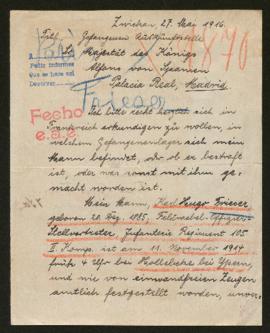 Zwickau 27. Mai 1916.
Titl. Gefangenen Auskunftsstelle
Sr Majestät des Königs
Alfons von Spanien
Palacio Real, Madrid
Pídanse informes
Devolver
Fecho
e.a.e.
Ich bitte recht herzlich sich in
Frankreich erkundigen zu wollen, in
welchem Gefangenenlager sich mein
Mann befindet, oder ob er bestraft
ist, oder was sonst mit ihm ge-
macht worden ist.
Mein Mann, Karl Hugo
geboren 20. Dez. 1885, Feldwebel-
Stellvertreter, Infanterie Regiment 105
II. Komp. ist am 11. November 1914
früh 4 Uhr bei Hollebeke bei Ypern
und wie von einwandfreien Zeugen
amtlich festgestellt worden,